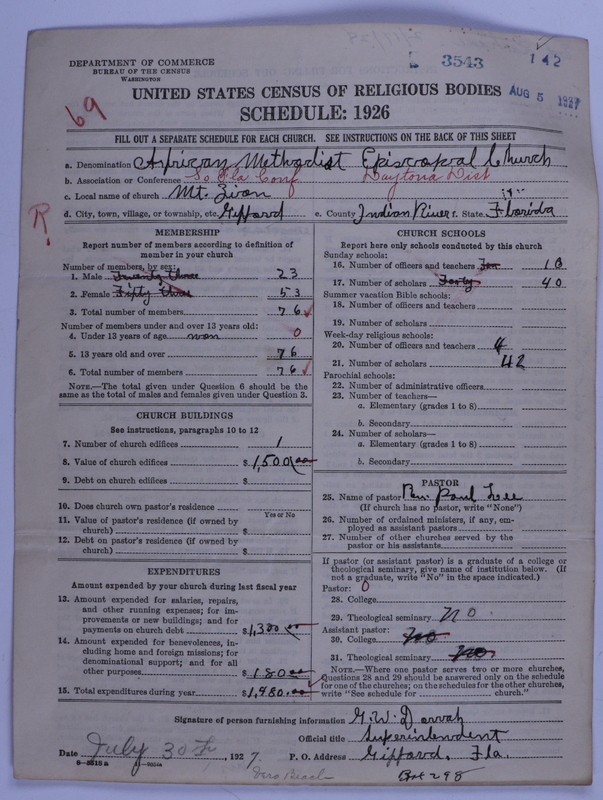 DEPARTMENT OF COMMERCE
BUREAU OF THE CENSUS
WASHINGTON
3543
142
69
UNITED STATES CENSUS OF RELIGIOUS BODIES
AUG 5 1927
SCHEDULE: 1926
FILL OUT A SEPARATE SCHEDULE FOR EACH CHURCH. SEE INSTRUCTIONS ON THE BACK OF THIS SHEET
a. Denomination African Methodist Episcopal Church
b. Association or Conference So Fla Conf Daytona Dist
c. Local name of church Mt. Zion
R.
d. City, town, village, or township, etc. Giffard e. County Indian River f. State Florida
MEMBERSHIP
Report number of members according to definition of
member in your church
Number of members, by sex:
1. Male Twenty three 23
2. Female Fifty three 53
3. Total number of members 76
Number of members under and over 13 years old:
4. Under 13 years of age non 0
5. 13 years old and over 76
6. Total number of members 76
NOTE.—The total given under Question 6 should be the
same as the total of males and females given under Question 3.
CHURCH BUILDINGS
See instructions, paragraphs 10 to 12
7. Number of church edifices 1
8. Value of church edifices $1,500.00
9. Debt on church edifices $
10. Does church own pastor's residence
Yes or No
11. Value of pastor's residence (if owned by
church) $
12. Debt on pastor's residence (if owned by
church) $
EXPENDITURES
Amount expended by your church during last fiscal year
13. Amount expended for salaries, repairs,
and other running expenses; for im-
provements or new buildings; and for
payments on church debt $1,300.00
14. Amount expended for benevolences, in-
cluding home and foreign missions; for
denominational support; and for all
other purposes $180.00
15. Total expenditures during year $1,480.00
CHURCH SCHOOLS
Report here only schools conducted by this church
Sunday schools:
16. Number of officers and teachers Ten 10
17. Number of scholars Forty 40
Summer vacation Bible schools:
18. Number of officers and teachers
19. Number of scholars
Week-day religious schools:
20. Number of officers and teachers 4
21. Number of scholars 42
Parochial schools:
22. Number of administrative officers
23. Number of teachers—
a. Elementary (grades 1 to 8)
b. Secondary
24. Number of scholars—
a. Elementary (grades 1 to 8)
b. Secondary
PASTOR
25. Name of pastor Rev. Paul Lee
(If church has no pastor, write "None")
26. Number of ordained ministers, if any, em-
ployed as assistant pastors
27. Number of other churches served by the
pastor or his assistants
If pastor (or assistant pastor) is a graduate of a college or
theological seminary, give name of institution below. (If
not a graduate, write "No" in the space indicated.)
Pastor: 0
28. College
29. Theological seminary no
Assistant pastor:
30. College no
31. Theological seminary no
NOTE.—Where one pastor serves two or more churches,
Questions 28 and 29 should be answered only on the schedule
for one of the churches; on the schedules for the other churches,
write "See schedule for church."
Signature of person furnishing information G. W. Dorrah
Official title Superintendent
Date July 30th, 1927. P. O. Address Giffard, Fla.
8-5510a
Vero Beach Box 298